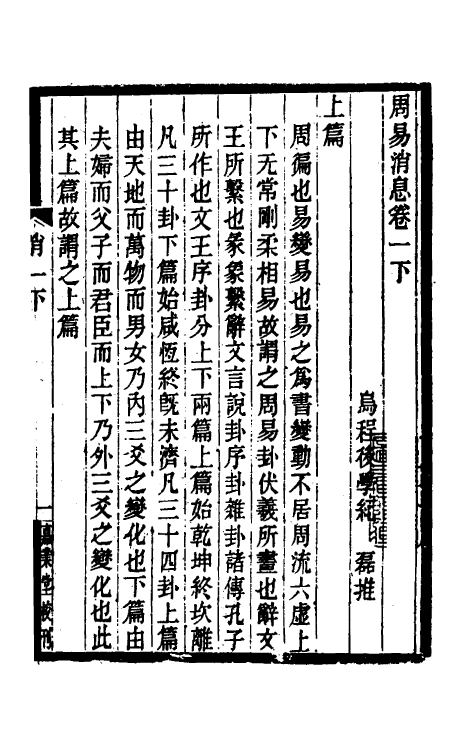 周易消息卷一下
烏程後學紀　磊推
上篇
周徧也易變易也易之爲書變動不居周流六虛上
下无常剛柔相易故謂之周易卦伏羲所畫也辭文
王所繫也彖象繫辭文言說卦序卦雜卦諸傳孔子
所作也文王序卦分上下兩篇上篇始乾坤終坎離
凡三十卦下篇始咸恆終旣未濟凡三十四卦上篇
由天地而萬物而男女乃內三爻之變化也下篇由
夫婦而父子而君臣而上下乃外三爻之變化也此
其上篇故謂之上篇
消一下
一
嘉業堂校刊